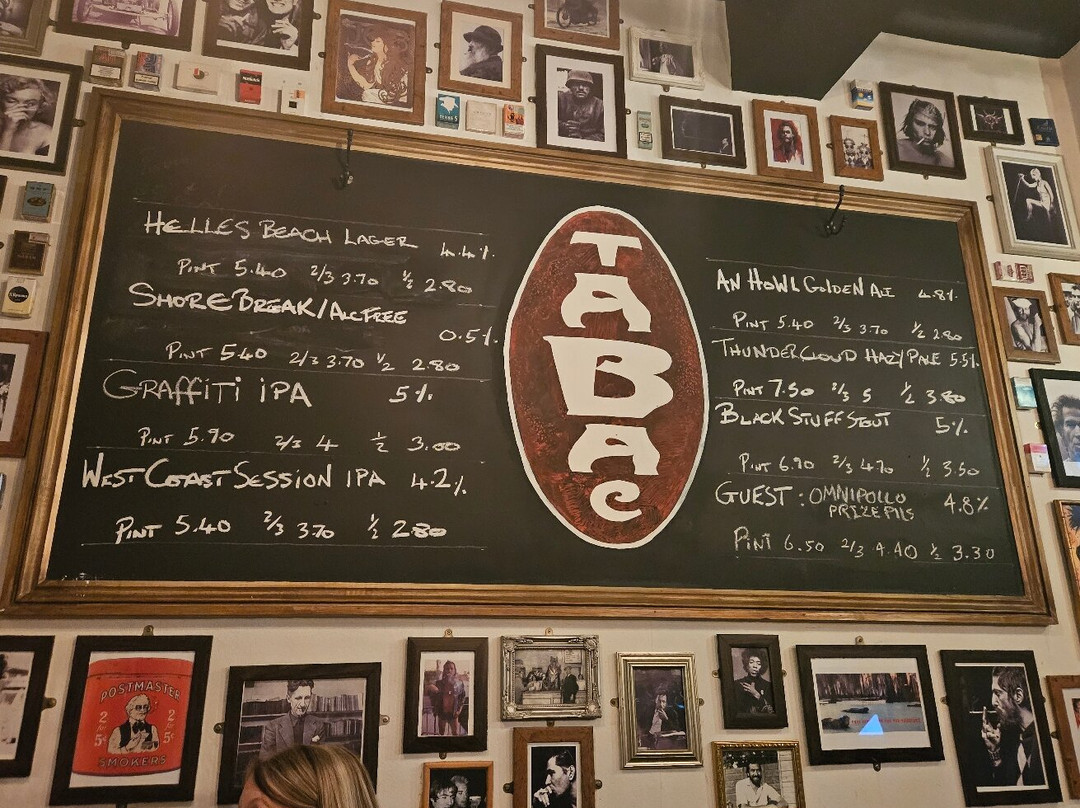 HELLES BEACH LAGER 4.4%
PINT 5.40 2/3 3.70 1/2 2.80
SHOREBREAK/ALCFREE 0.5%
PINT 5.40 2/3 3.70 1/2 2.80
GRAFFITI IPA 5%
PINT 5.90 2/3 4 1/2 3.00
WEST COAST SESSION IPA 4.2%
PINT 5.40 2/3 3.70 1/2 2.80
TABAC
AN HOWL GOLDEN ALE 4.8%
PINT 5.40 2/3 3.70 1/2 2.80
THUNDERCLOUD HAZY PALE 5.5%
PINT 7.50 2/3 5 1/2 3.80
BLACK STUFF STOUT 5%
PINT 6.90 2/3 4.70 1/2 3.50
GUEST: OMNIPOLLO 4.8%
PRIZE PILS
PINT 6.50 2/3 4.40 1/2 3.30
POSTMASTER
2 for 5¢ 2 for 5¢
SMOKERS